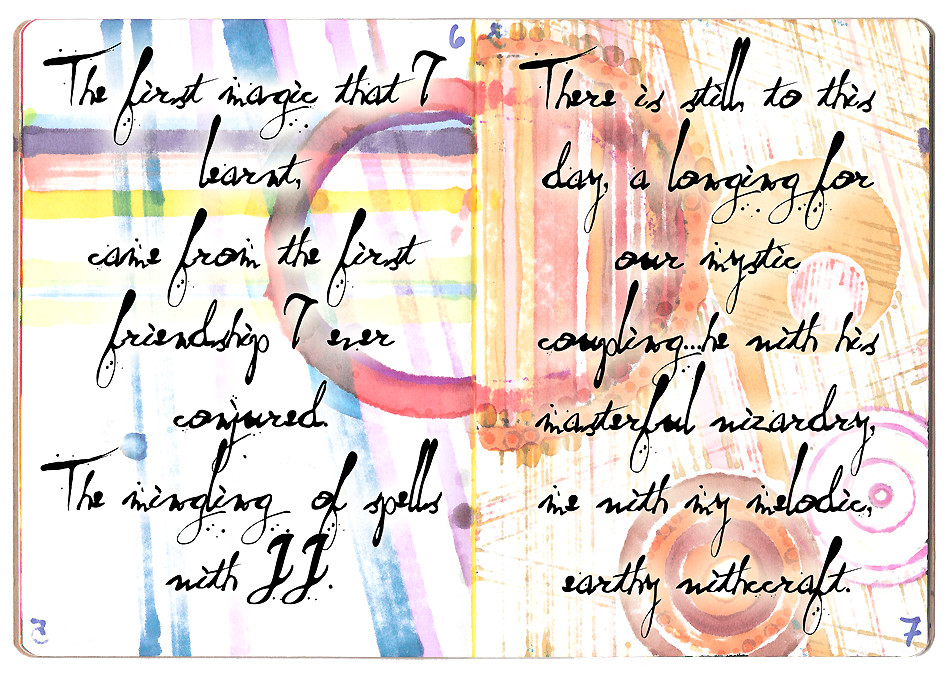 6
The first magic that I
learnt,
came from the first
friendship I ever
conjured.
The mingling of spells
with JJ.
There is still, to this
day, a longing for
our mystic
coupling...he with his
masterful wizardry,
me with my melodic,
earthy withccraft.
7